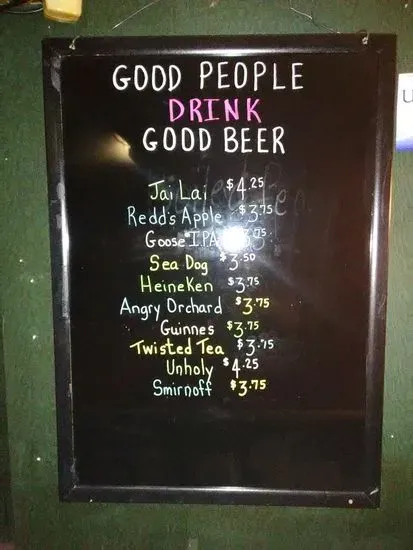 GOOD PEOPLE
DRINK
GOOD BEER
Jai Lai $4.25
Redd's Apple $3.75
Goose IPA $3.75
Sea Dog $3.50
Heineken $3.75
Angry Orchard $3.75
Guinnes $3.75
Twisted Tea $3.75
Unholy $4.25
Smirnoff $3.75